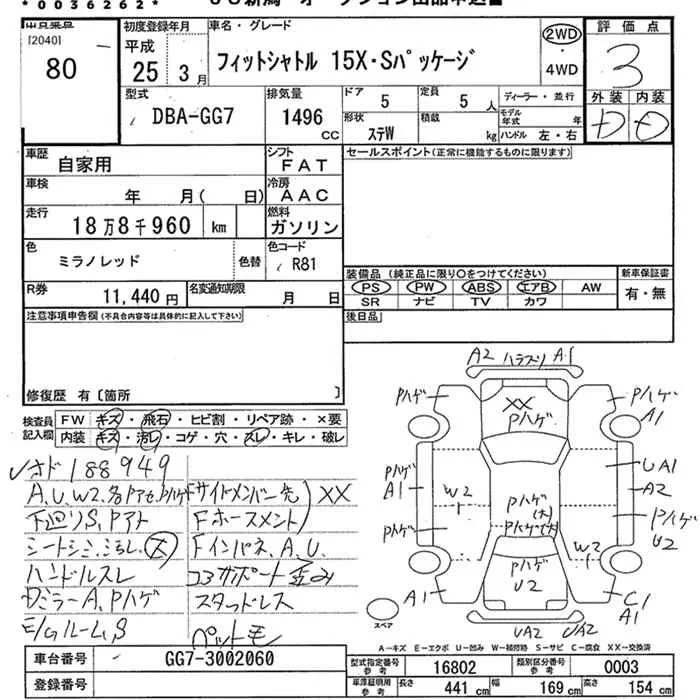 *0036262*
出品票 [2040] 80
初度登録年月 平成 25 3月
車名・グレード フィットシャトル 15X・Sパッケージ
2WD ・ 4WD
評価点 3
外装 内装 D D
型式 DBA-GG7
排気量 1496 CC
ドア 5 定員 5 人
ディーラー・並行
形状 ステW 積載 kg
モデル年式 年
ハンドル 左・右
車歴 自家用
シフト FAT
セールスポイント(正常に機能するものに限ります)
車検 年 月( 日)
冷房 AAC
走行 18万8千960 km
燃料 ガソリン
色 ミラノレッド 色替
色コード R81
装備品(純正品に限り○をつけてください)
新車保証書
PS PW ABS エアB AW
有・無
SR ナビ TV カワ
R券 11,440円 名変通知期限 月 日
注意事項申告欄(不具合内容等は具体的に記入して下さい)
後日品
修復歴 有〔箇所 〕
検査員記入欄
FW キズ・飛石・ヒビ割・リペア跡・×要
内装 キズ・汚レ・コゲ・穴・スレ・キレ・破レ
メオド188949
A、U、W2、各ドアセ、Pハゲ
下廻りS、Pアト
シートシミ、汚れ、大
ハンドルスレ
Dミラー A、Pハゲ
E/gルームS
Fサイドメンバー先 XX
Fホースメント
Fインパネ、A、U
コアサポート歪み
スタッドレス
ペット毛
A2 ハラスリ A1
Pハゲ XX Pハゲ Pハゲ A1
Pハゲ A1 W2 Pハゲ(大) UA1
A2
Pハゲ Pハゲ(大) Pハゲ U2
W2
A1 Pハゲ U2 C1 A1
UA2 UA2
スペア
A-キズ E-エクボ U-凹み W-補修跡 S-サビ C-腐食 XX-交換済
車台番号 GG7-3002060
型式指定番号 参考 16802 類別区分番号 参考 0003
登録番号
車庫証明用 参考 長さ 441 cm 幅 169 cm 高さ 154 cm